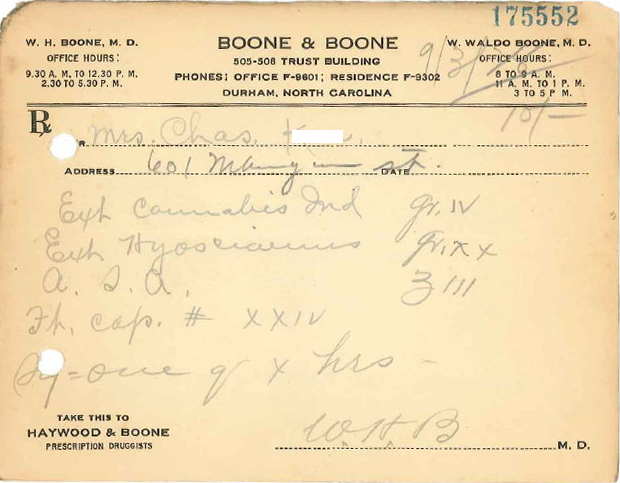 175552
W. H. BOONE, M. D.
OFFICE HOURS:
9.30 A. M. TO 12.30 P. M.
2.30 TO 5.30 P. M.
BOONE & BOONE
505-508 TRUST BUILDING
PHONES; OFFICE F-9601; RESIDENCE F-9302
DURHAM, NORTH CAROLINA
W. WALDO BOONE, M. D.
OFFICE HOURS:
8 TO 9 A. M.
11 A. M. TO 1 P. M.
3 TO 5 P M.
9/3/
℞
R Mrs. Chas. K
ADDRESS 601 st. DATE
Ext Cannabis Ind gr. IV
Ext Hyosciamus gr. XX
A. S. A. ʒ III
Ft. cap. # XXIV
Sig = one q x hrs -
TAKE THIS TO
HAYWOOD & BOONE
PRESCRIPTION DRUGGISTS
W. H. B M. D.